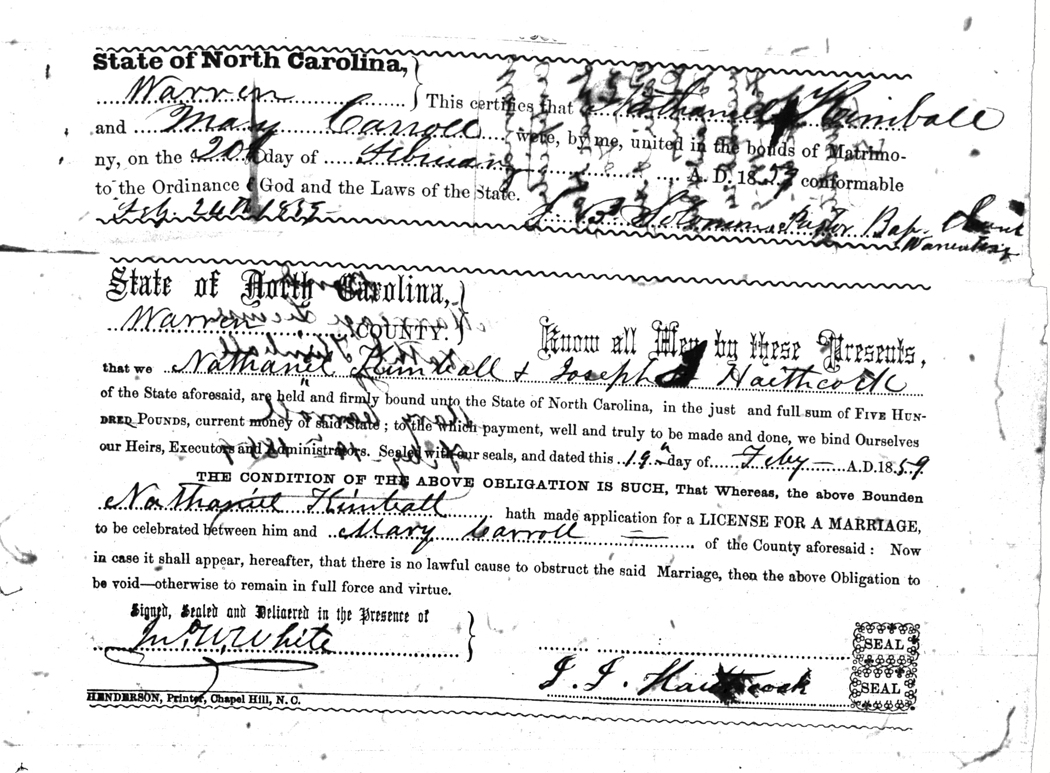 State of North Carolina,
Warren } This certifies that Nathaniel Kimball
and Mary Carroll were, by me, united in the bonds of Matrimo-
ny, on the 20th day of February A. D. 1859 conformable
to the Ordinance of God and the Laws of the State.
Feb. 20th 1859 Pastor Bap.
Warrenton
State of North Carolina,
Warren COUNTY. } Know all Men by these Presents,
that we Nathaniel Kimball & Joseph Haithcock
of the State aforesaid, are held and firmly bound unto the State of North Carolina, in the just and full sum of FIVE HUN-
DRED POUNDS, current money of said State; to the which payment, well and truly to be made and done, we bind Ourselves
our Heirs, Executors and Administrators. Sealed with our seals, and dated this 19th day of Feby A.D. 1859
THE CONDITION OF THE ABOVE OBLIGATION IS SUCH, That Whereas, the above Bounden
Nathaniel Kimball hath made application for a LICENSE FOR A MARRIAGE,
to be celebrated between him and Mary Carroll of the County aforesaid: Now
in case it shall appear, hereafter, that there is no lawful cause to obstruct the said Marriage, then the above Obligation to
be void—otherwise to remain in full force and virtue.
Signed, Sealed and Delivered in the Presence of
Jno. W. White } SEAL
J. J. Haithcock SEAL
HENDERSON, Printer, Chapel Hill, N. C.